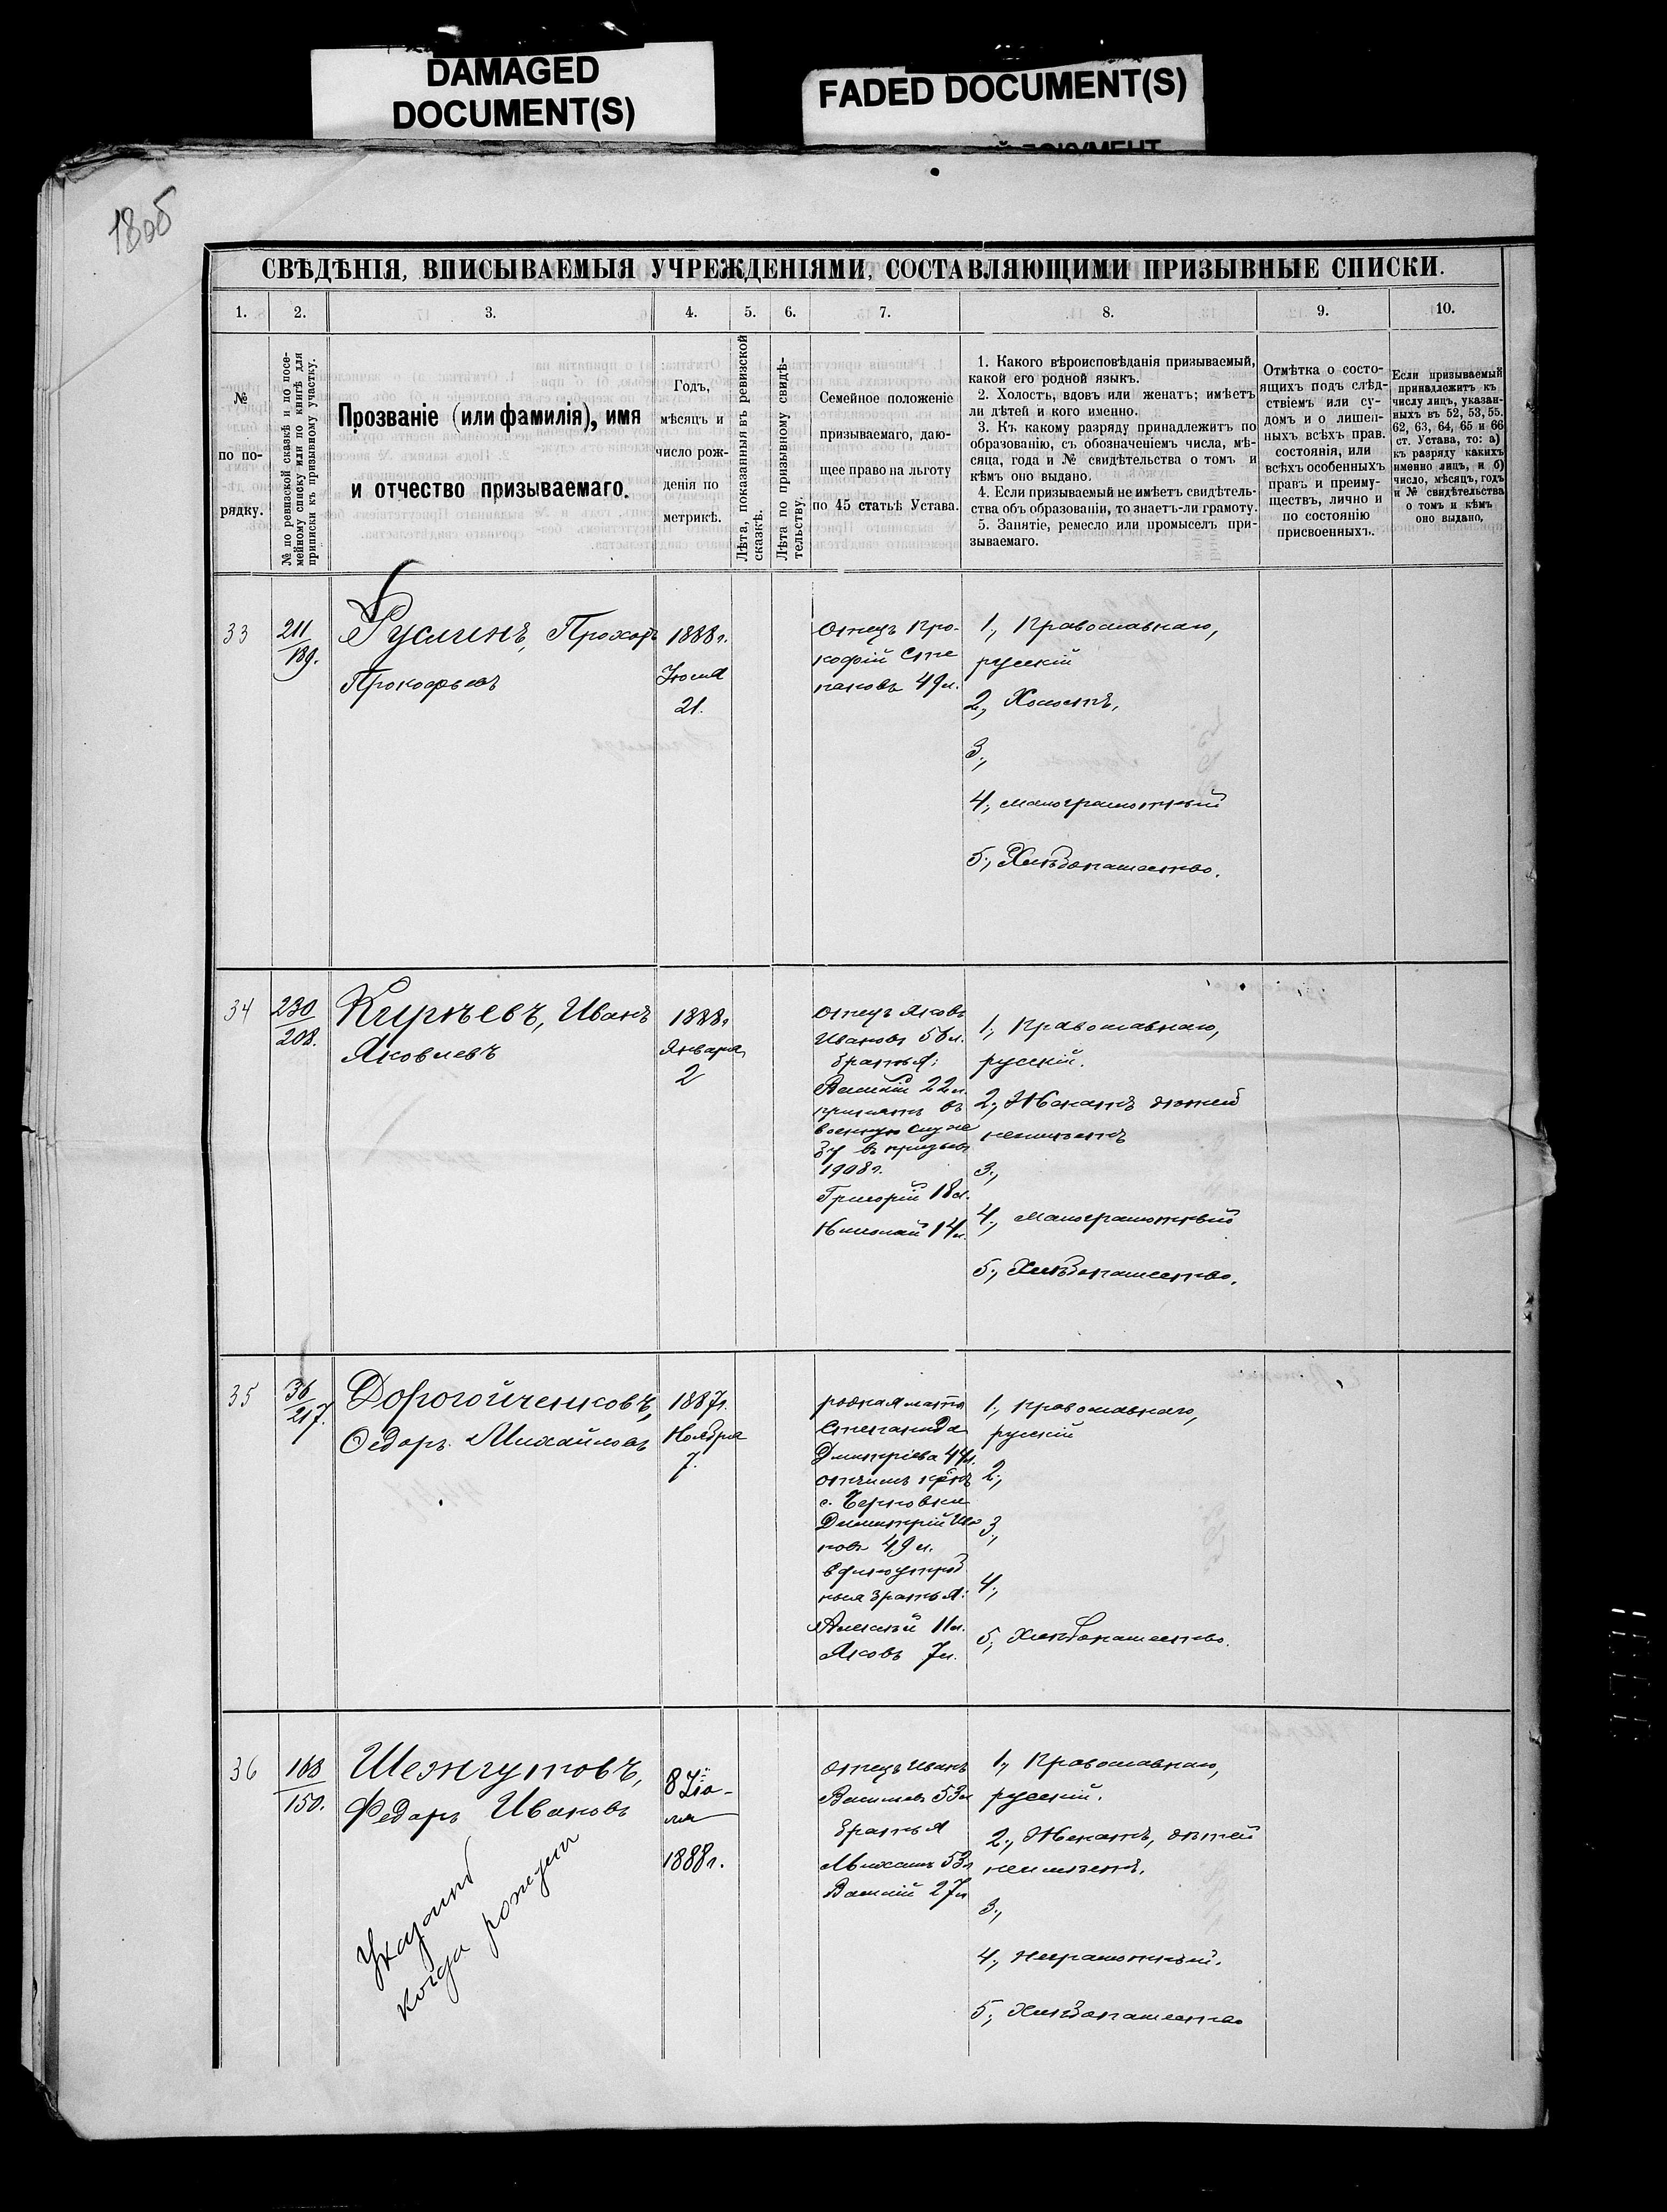 DAMAGED
DOCUMENT(S)
FADED DOCUMENT(S)
180б
СВѢДѢНІЯ, ВПИСЫВАЕМЫЯ УЧРЕЖДЕНІЯМИ, СОСТАВЛЯЮЩИМИ ПРИЗЫВНЫЕ СПИСКИ.
1. 2. 3. 4. 5. 6. 7. 8. 9. 10.
№
по по-
рядку.
№ по ревизской сказкѣ и по посе-
мейному списку или по книгѣ для
приписки къ призывному участку.
Прозваніе (или фамилія), имя
и отчество призываемаго.
Годъ,
мѣсяцъ и
число рож-
денія по
метрикѣ.
Лѣта, показанныя въ ревизской
сказкѣ.
Лѣта по призывному свидѣ-
тельству.
Семейное положеніе
призываемаго, даю-
щее право на льготу
по 45 статьѣ Устава.
1. Какого вѣроисповѣданія призываемый,
какой его родной языкъ.
2. Холостъ, вдовъ или женатъ; имѣетъ
ли дѣтей и кого именно.
3. Къ какому разряду принадлежитъ по
образованію, съ обозначеніемъ числа, мѣ-
сяца, года и № свидѣтельства о томъ и
кѣмъ оно выдано.
4. Если призываемый не имѣетъ свидѣтель-
ства объ образованіи, то знаетъ-ли грамоту.
5. Занятіе, ремесло или промыселъ при-
зываемаго.
Отмѣтка о состо-
ящихъ подъ слѣд-
ствіемъ или су-
домъ и о лишен-
ныхъ всѣхъ прав.
состоянія, или
всѣхъ особенныхъ
правъ и преиму-
ществъ, лично и
по состоянію
присвоенныхъ.
Если призываемый
принадлежитъ къ
числу лицъ, указан-
ныхъ въ 52, 53, 55.
62, 63, 64, 65 и 66
ст. Устава, то: а)
къ разряду какихъ
именно лицъ, и б)
число, мѣсяцъ, годъ
и № свидѣтельства
о томъ и кѣмъ
оно выдано.
33
211
189.
Руслинъ, Прохоръ
Прокофьевъ
1888г.
Іюля
21.
Отецъ Про-
кофій Сте
пановъ 49л.
1., Православнаго,
русскій
2., Холостъ,
3.,
4., малограмотный
5., Хлѣбопашество.
34
230
208.
Кирѣевъ, Иванъ
Яковлевъ
1888г.
Января
2
Отецъ Яковъ
Ивановъ 56л.
братья:
Василій 22л.
принятъ въ
военную служ
бу въ призывъ
1908г.
Григорій 18л.
Николай 14л.
1., Православнаго,
русскій.
2., Женатъ дѣтей
неимѣетъ
3.,
4., Малограмотный
5., Хлѣбопашество.
35
36
217.
Дорогойченковъ,
Ѳедоръ Михайловъ
1887г.
Ноября
7.
родная мать
Степанида
Дмитріева 44л.
отчимъ кр-нъ
с. Черновки
Димитрій Ива
новъ 49л.
единоутроб
ныя братья:
Алексѣй 11л.
Яковъ 7л.
1., Православнаго,
русскій
2.,
3.,
4.,
5., Хлѣбопашество.
36
168
150.
Шежгутовъ,
Федоръ Ивановъ
8 Ію-
ля
1888г.
Отецъ Иванъ
Васильевъ 53л
братья
Михаилъ 53л
Василій 27л
1., Православнаго,
русскій.
2., Женатъ, дѣтей
неимѣетъ.
3.,
4., неграмотный.
5., Хлѣбопашество
когда рожден